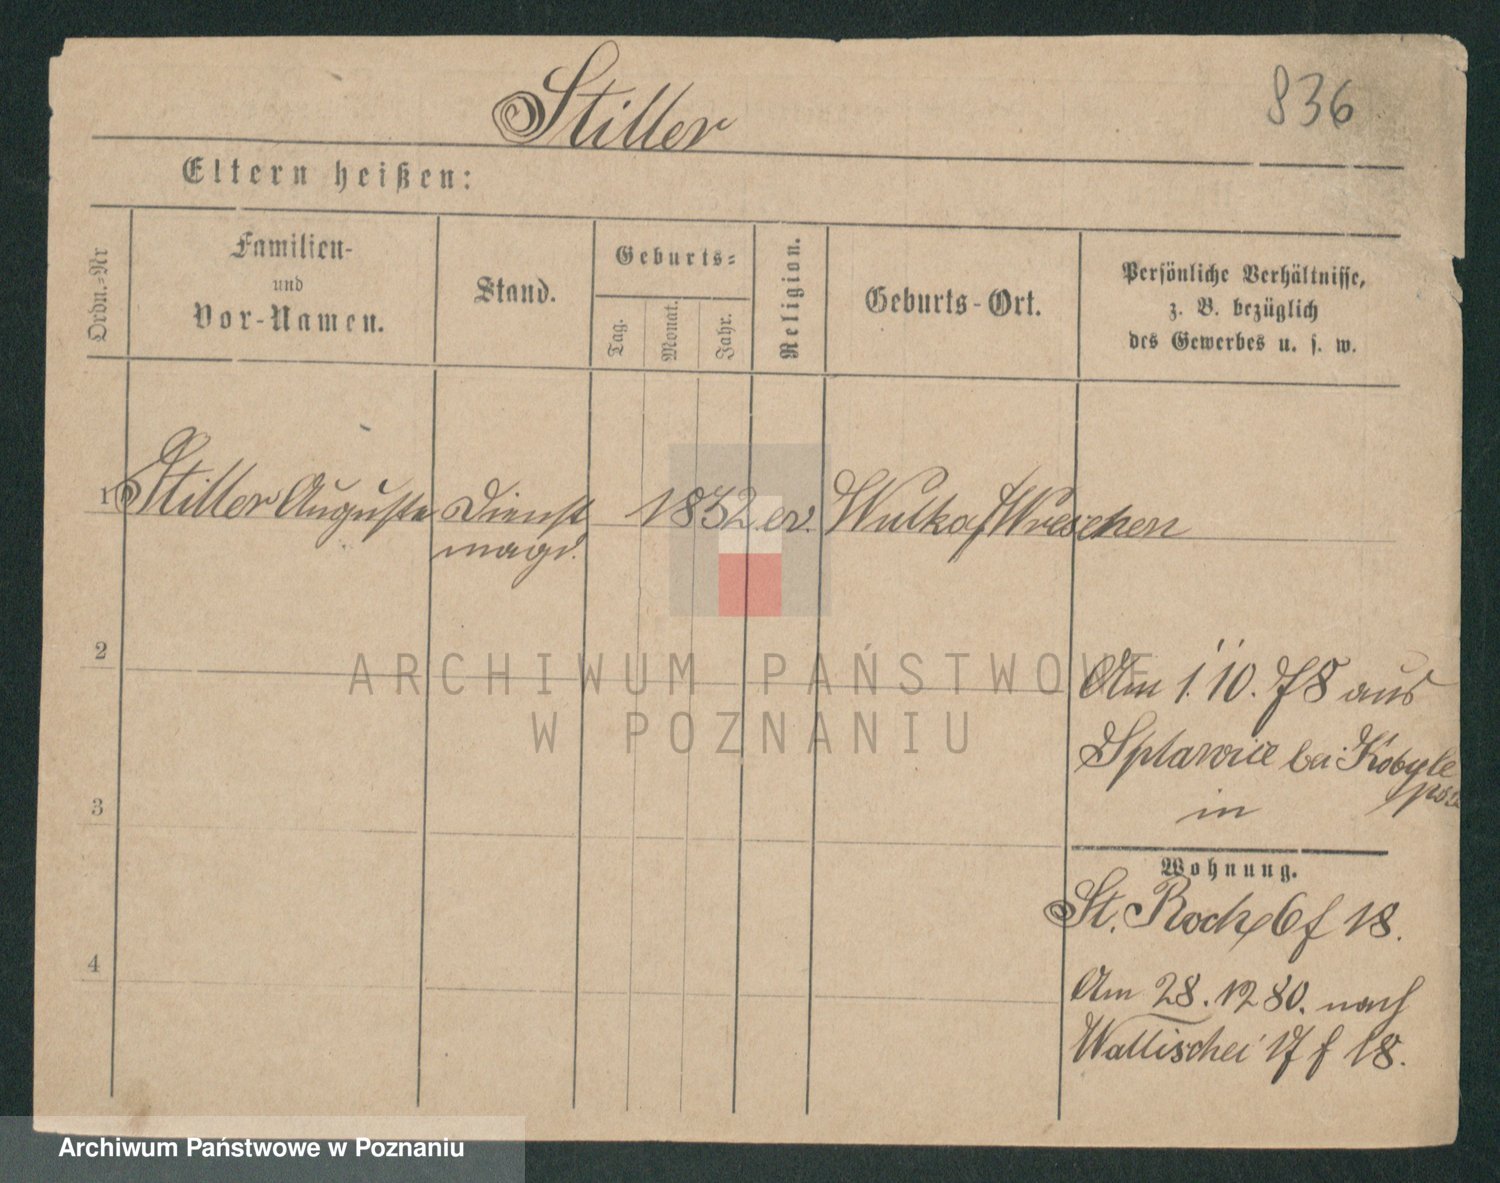 Stiller
836
Eltern heißen:
Ordn.-Nr
Familien-
und
Vor-Namen.
Stand.
Geburts-
Tag.
Monat.
Jahr.
Religion.
Geburts-Ort.
Persönliche Verhältnisse,
z. B. bezüglich
des Gewerbes u. s. w.
1 Stiller Auguste Dienst 1832 ev. Wulka / Wreschen
magd.
2
Am 1. 10. 78 aus
Splawice bei Kobyle
in
3
Wohnung.
St. Roch 6 f 18.
4
Am 28. 12 80. nach
Wallischei 17 f 18.
ARCHIWUM PAŃSTWOWE
W POZNANIU
Archiwum Państwowe w Poznaniu